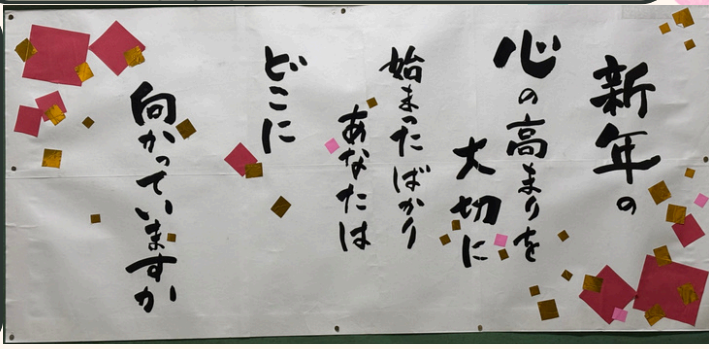 新年の
心の高まりを
大切に
始まったばかり
あなたは
どこに
向かっていますか